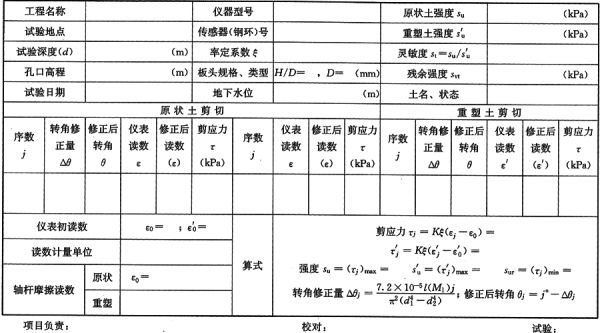 工程名称 仪器型号 原状土强度 su (kPa)
试验地点 传感器(钢环)号 重塑土强度 s′u (kPa)
试验深度(d) (m) 率定系数 ξ 灵敏度 st=su/s′u
孔口高程 (m) 板头规格、类型 H/D= ,D= (mm) 残余强度 (kPa)
试验日期 地下水位 (m) 土名、状态
原状土剪切 重塑土剪切
序数 j 转角修正量 Δθ 修正后转角 θ 仪表读数 ε 修正后读数 (ε) 剪应力 τ (kPa) 序数 j 仪表读数 ε 修正后读数 (ε) 剪应力 τ (kPa) 序数 j 转角修正量 Δθ 修正后转角 θ 仪表读数 ε′ 修正后读数 (ε′) 剪应力 τ (kPa)
仪表初读数 ε0= ;ε′0=
读数计量单位
轴杆摩擦读数 原状 ε0=
重塑
算式
剪应力 τj=Kξ(εj-ε0)=
τ′j=Kξ(ε′j-ε′0)=
强度 su=(τj)max= s′u=(τ′j)max= sur=(τj)min=
转角修正量 Δθj=7.2×10⁻⁵l(M1)j/π²(d⁴1-d⁴2);修正后转角 θj=j°-Δθj
项目负责: 校对: 试验: